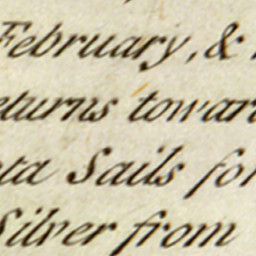 February, &
eturns towar
ta Sails for
Silver from